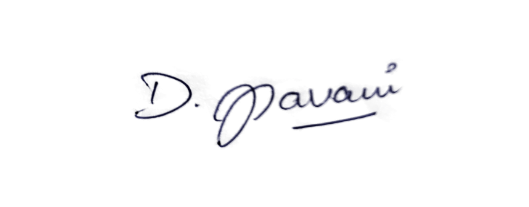 D. Pavani